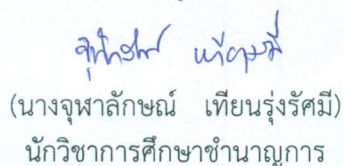 (นางจุฬาลักษณ์ เทียนรุ่งรัศมี)
นักวิชาการศึกษาชำนาญการ